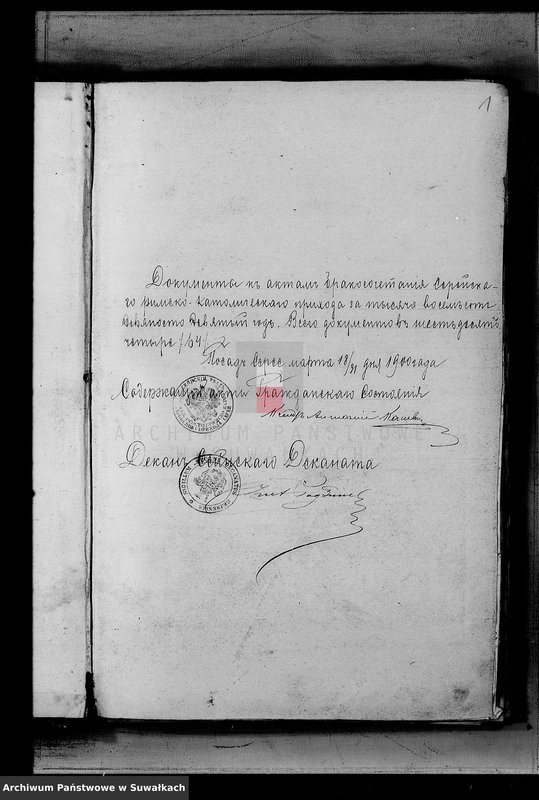 1
Документы къ актамъ бракосочетанія Серейска-
го римско-католическаго прихода за тысяча восемьсотъ
девяносто девятый годъ. Всего документовъ шестьдесятъ
четыре /64/.
Посадъ Сереѣ марта 18/31 дня 1900 года
Содержащій акты Гражданскаго Состоянія
Антоній
Деканъ Сейнскаго Деканата
ARCHIWUM PAŃSTWOWE
Archiwum Państwowe w Suwałkach